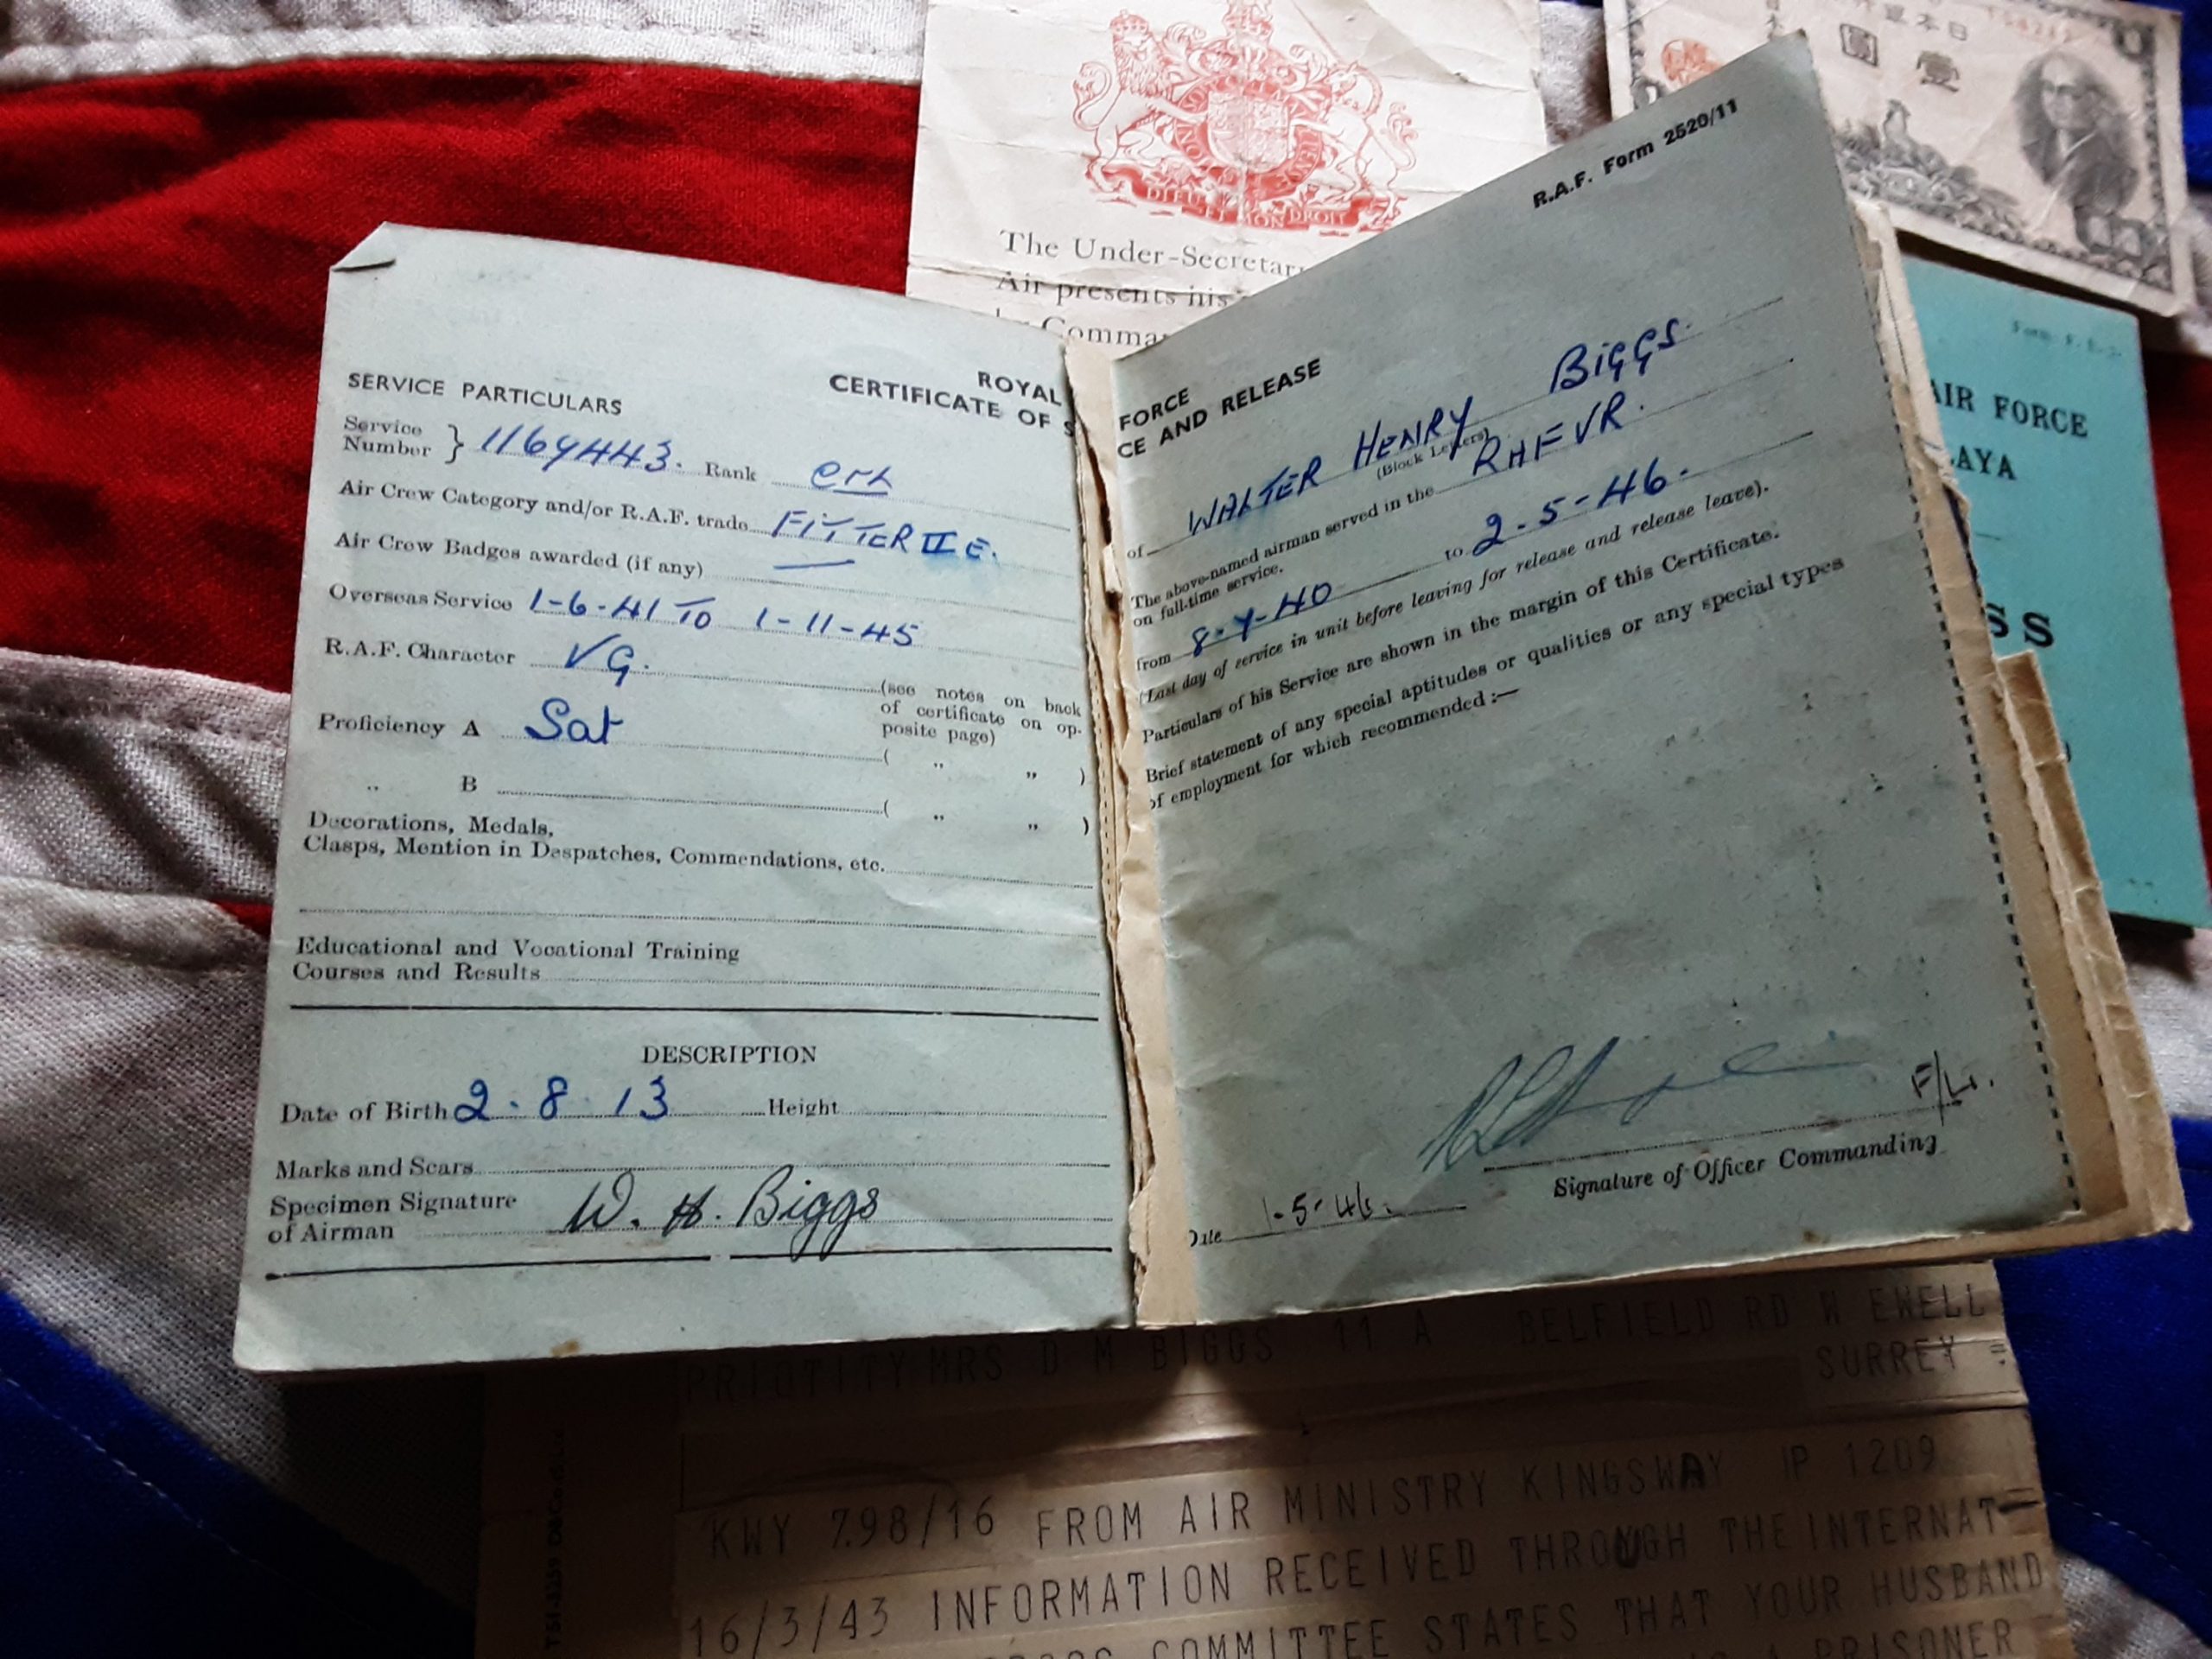 The Under-Secretary
Air presents his
Comma
R.A.F. Form 2520/11
日本
圓 壹
AIR FORCE
LAYA
SS
ROYAL
CERTIFICATE OF S
SERVICE PARTICULARS
Service
Number } 1169443. Rank
Air Crew Category and/or R.A.F. trade FITTER II E.
Air Crew Badges awarded (if any) —
Overseas Service 1-6-41 TO 1-11-45
R.A.F. Character VG. (see notes on back
of certificate on op-
posite page)
Proficiency A Sat ( ,, ,, )
,, B ( ,, ,, )
Decorations, Medals,
Clasps, Mention in Despatches, Commendations, etc.
Educational and Vocational Training
Courses and Results
DESCRIPTION
Date of Birth 2.8.13 Height
Marks and Scars
Specimen Signature
of Airman W. H. Biggs
FORCE
CE AND RELEASE
of WALTER HENRY BIGGS.
(Block Letters)
The above-named airman served in the RAFVR.
on full-time service.
from 8-7-40 to 2-5-46.
(Last day of service in unit before leaving for release and release leave).
Particulars of his Service are shown in the margin of this Certificate.
Brief statement of any special aptitudes or qualities or any special types
of employment for which recommended :—
F/Lt.
Signature of Officer Commanding
Date 1-5-46.
PRIOTITY MRS D M BIGGS 11 A BELFIELD RD W EWELL
SURREY =
KWY 798/16 FROM AIR MINISTRY KINGSWAY IP 1209
16/3/43 INFORMATION RECEIVED THROUGH THE INTERNAT-
COMMITTEE STATES THAT YOUR HUSBAND
A PRISONER